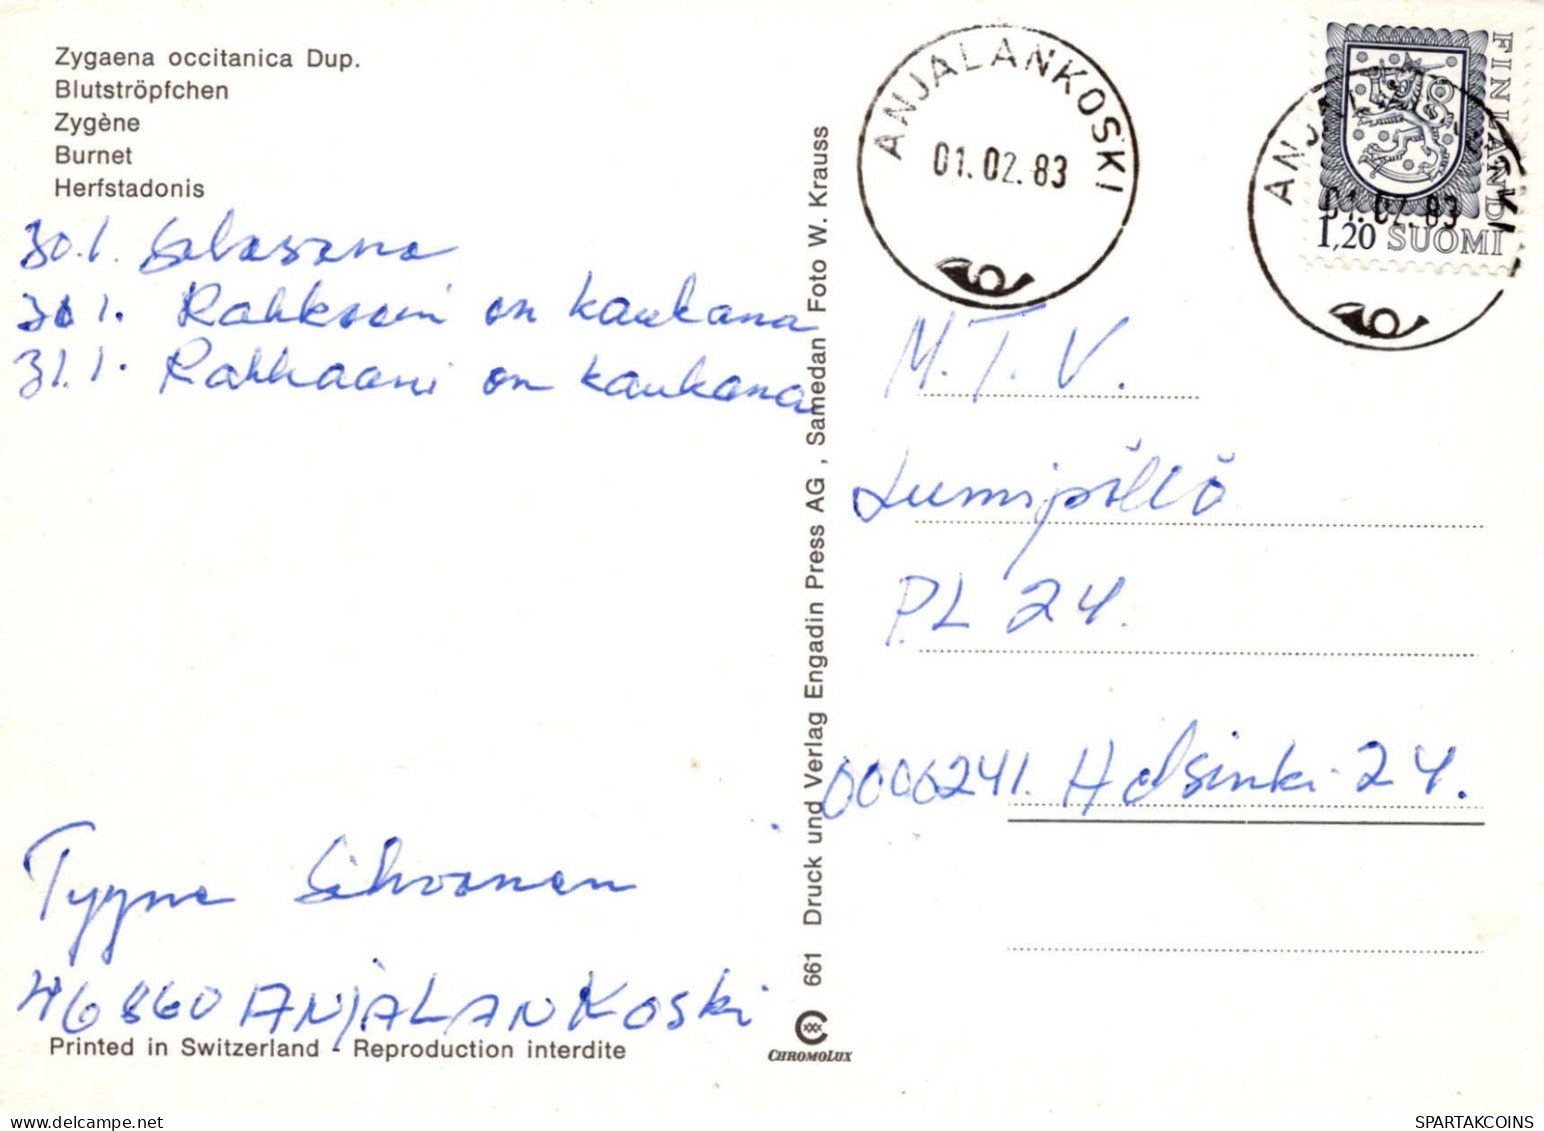 Zygaena occitanica Dup.
Blutströpfchen
Zygène
Burnet
Herfstadonis
30.1. Salasana
31 1. Rakkseni on kaukana
31.1. Rakkaani on kaukana
Tyyne Sihvonen
46860 ANJALANKOSKi
Printed in Switzerland - Reproduction interdite
661 Druck und Verlag Engadin Press AG, Samedan Foto W. Krauss
CHROMOLUX
ANJALANKOSKI
01.02.83
FINLAND
1,20 SUOMI
01.02.83
M.T.V.
Lumipöllö
PL 24.
0006241. Helsinki 24.
SPARTAKCOINS